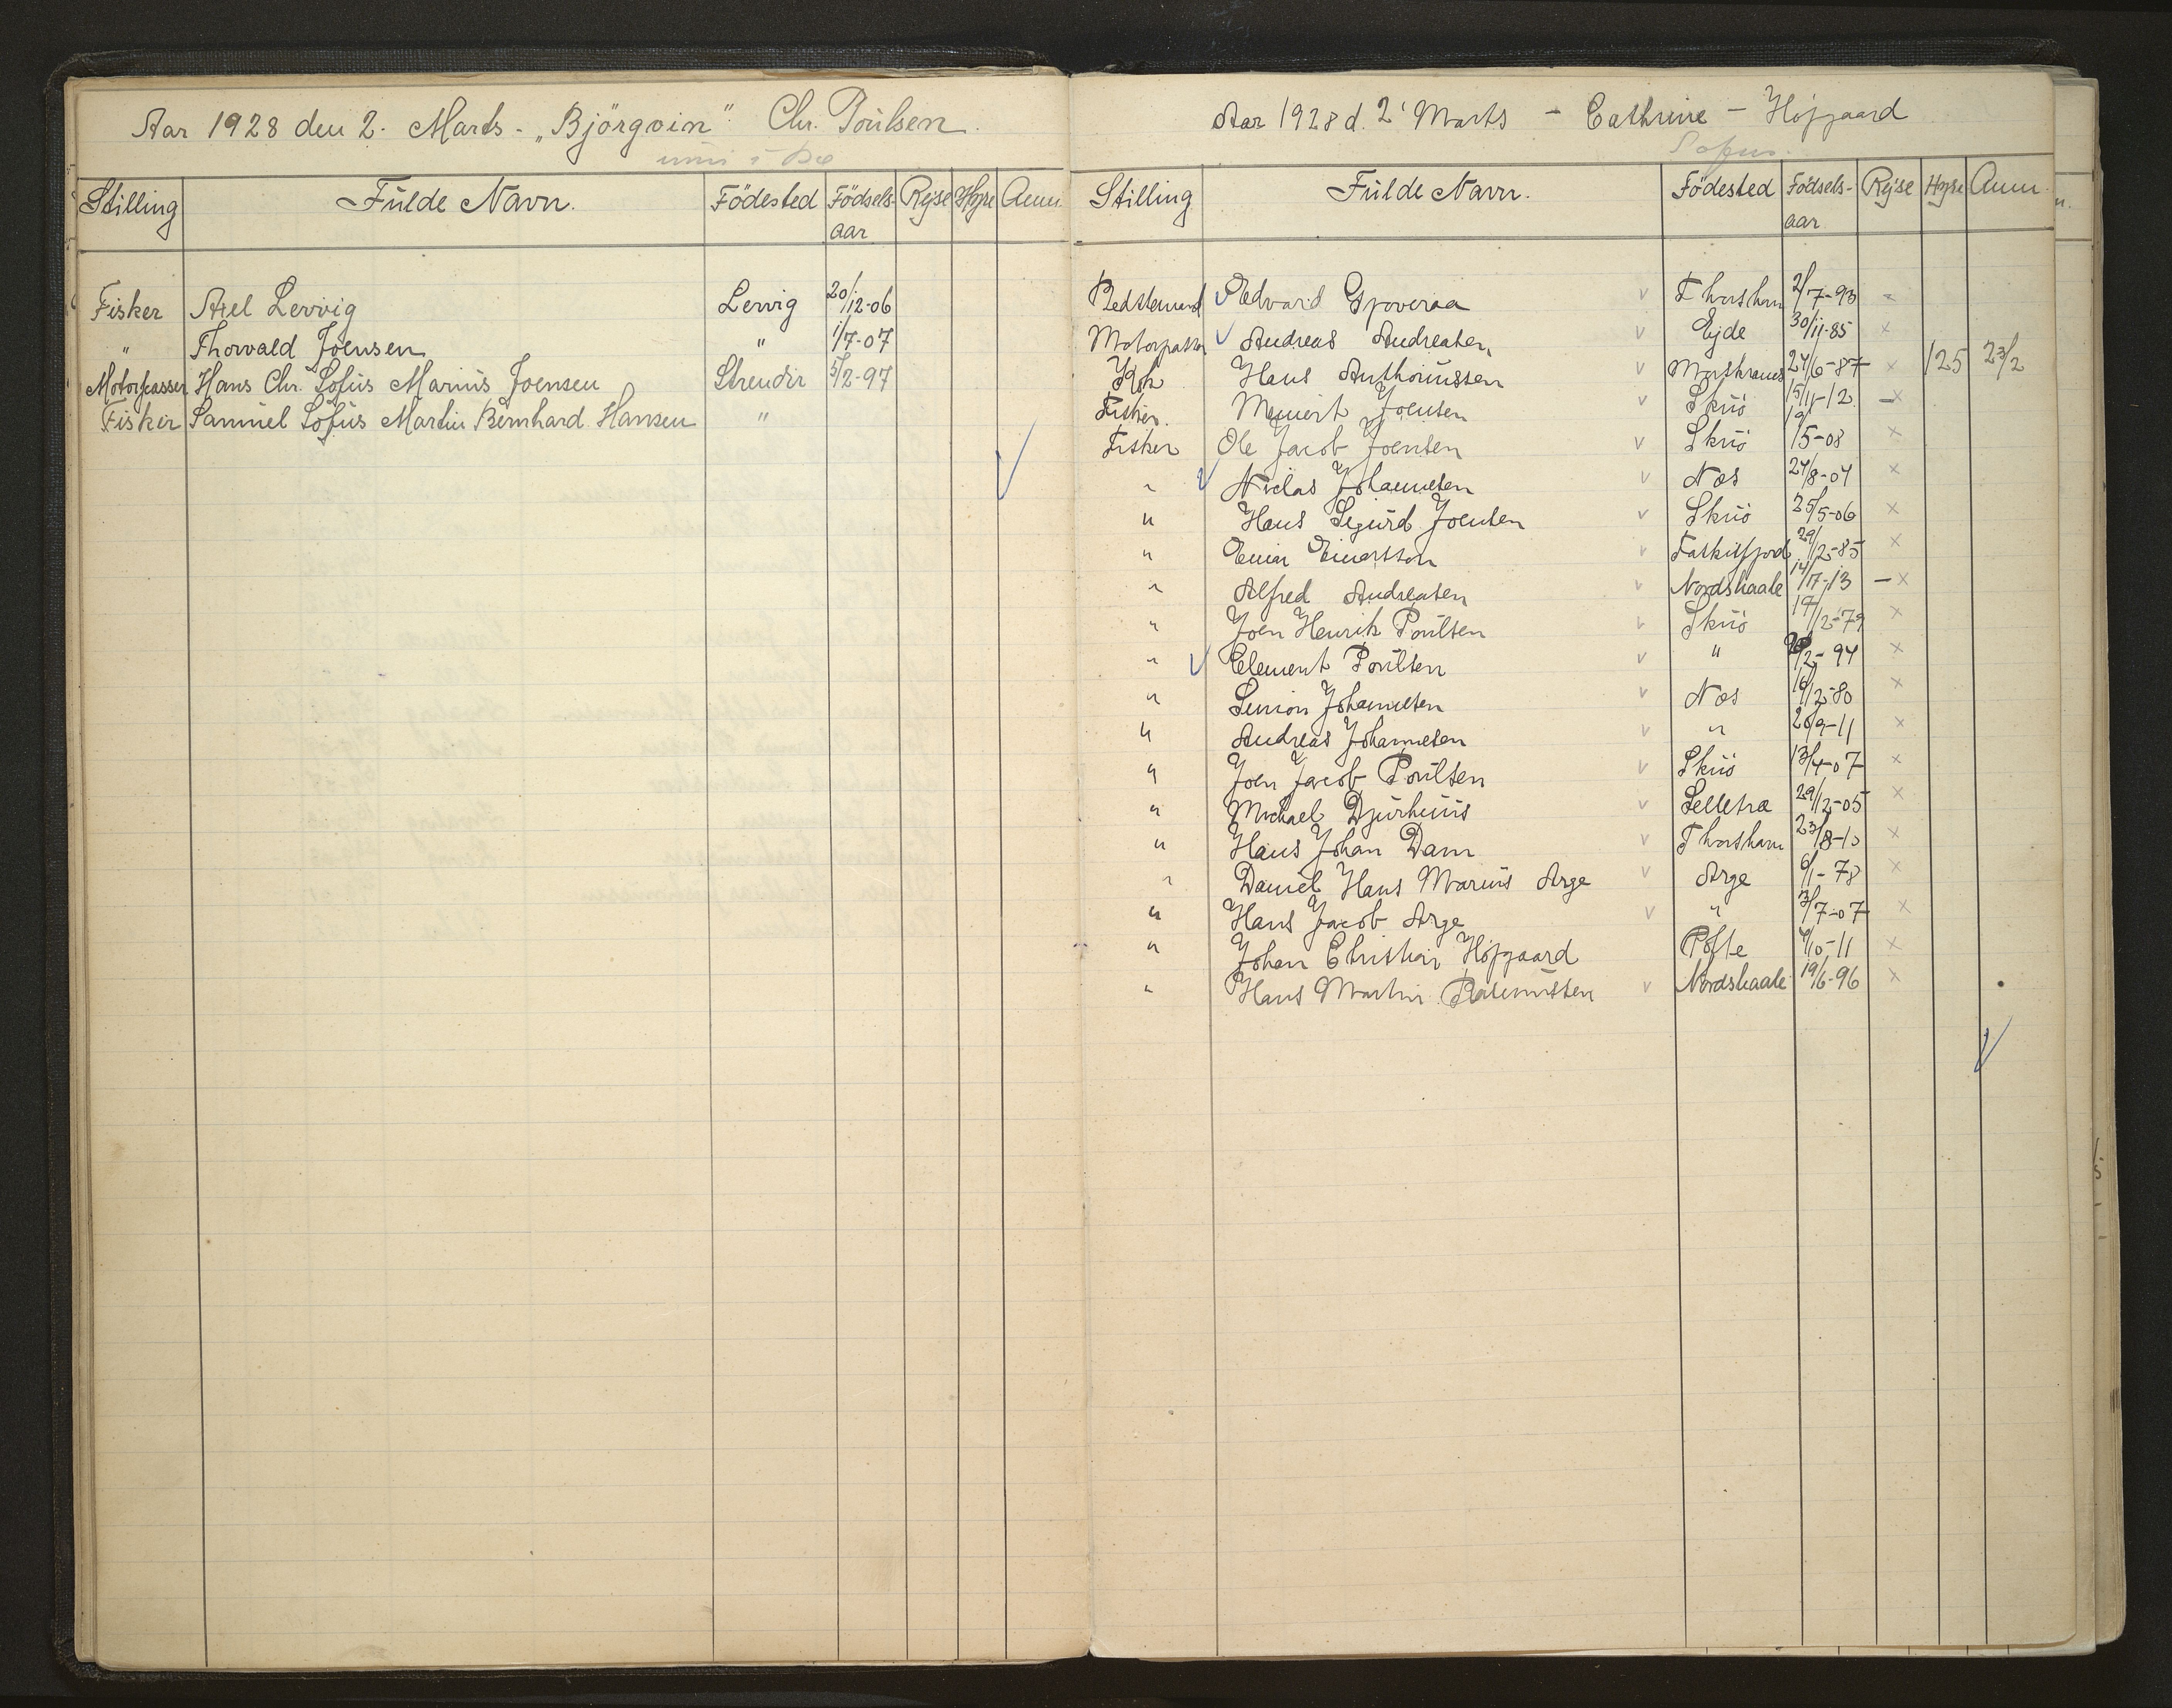 Aar 1928 den 2. Marts - „Björgvin" Chr. Poulsen.
Stilling Fulde Navn. Födested Födsels-aar Rejse Hyre Anm.
Fisker Axel Lervig Lervig 20/12-06
" Thorvald Joensen " 1/7-07
Motorpasser Hans Chr. Sofus Marius Joensen Strendir 5/2-97
Fisker Samuel Sofus Martin Bernhard Hansen "
Aar 1928 d. 2' Marts - Cathrine - Höjgaard
Sofus.
Stilling Fulde Navn. Födested Födsels-aar Rejse Hyre Anm.
Bedstemand Edvard Gjoveraa Thorshavn 2/7-93 -
Motorpasser Andreas Andreasen Ejde 30/11-85 x
Kok Hans Anthoniussen 24/6-87 x 125 23/2
Fisker. Meinert Joensen Skuö 15/11-12 - x
Fisker Ole Jacob Joensen Skuö 19/5-08 x
" Niclas Johannesen Nes 24/8-04 x
" Hans Sigurd Joensen Skuö 25/5-06 x
" Einar Einarsson Faskrsfjord 29/12-85 x
" Alfred Andreasen Nordskaale 14/7-13 - x
" Joen Henrik Poulsen Skuö 19/12-79 x
" Clement Poulsen " /2-94 x
" Simon Johannesen Nes 16/12-80 x
" Andreas Johannesen " 26/9-11 x
" Joen Jacob Poulsen Skuö 13/4-07 x
" Michael Djurhuus Selletra 29/12-05 x
" Hans Johan Dam Thorshavn 23/8-10 x
" Daniel Hans Marius Arge Arge 6/1-78 x
" Hans Jacob Arge " 3/7-07 x
" Johan Christian Höjgaard Tofte 4/10-11 x
" Hans Martin Rasmussen Nordskaale 19/6-96 x